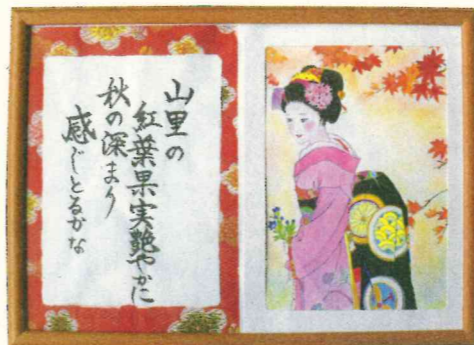 山里の
紅葉果実艶やかに
秋の深まり
感じとるかな